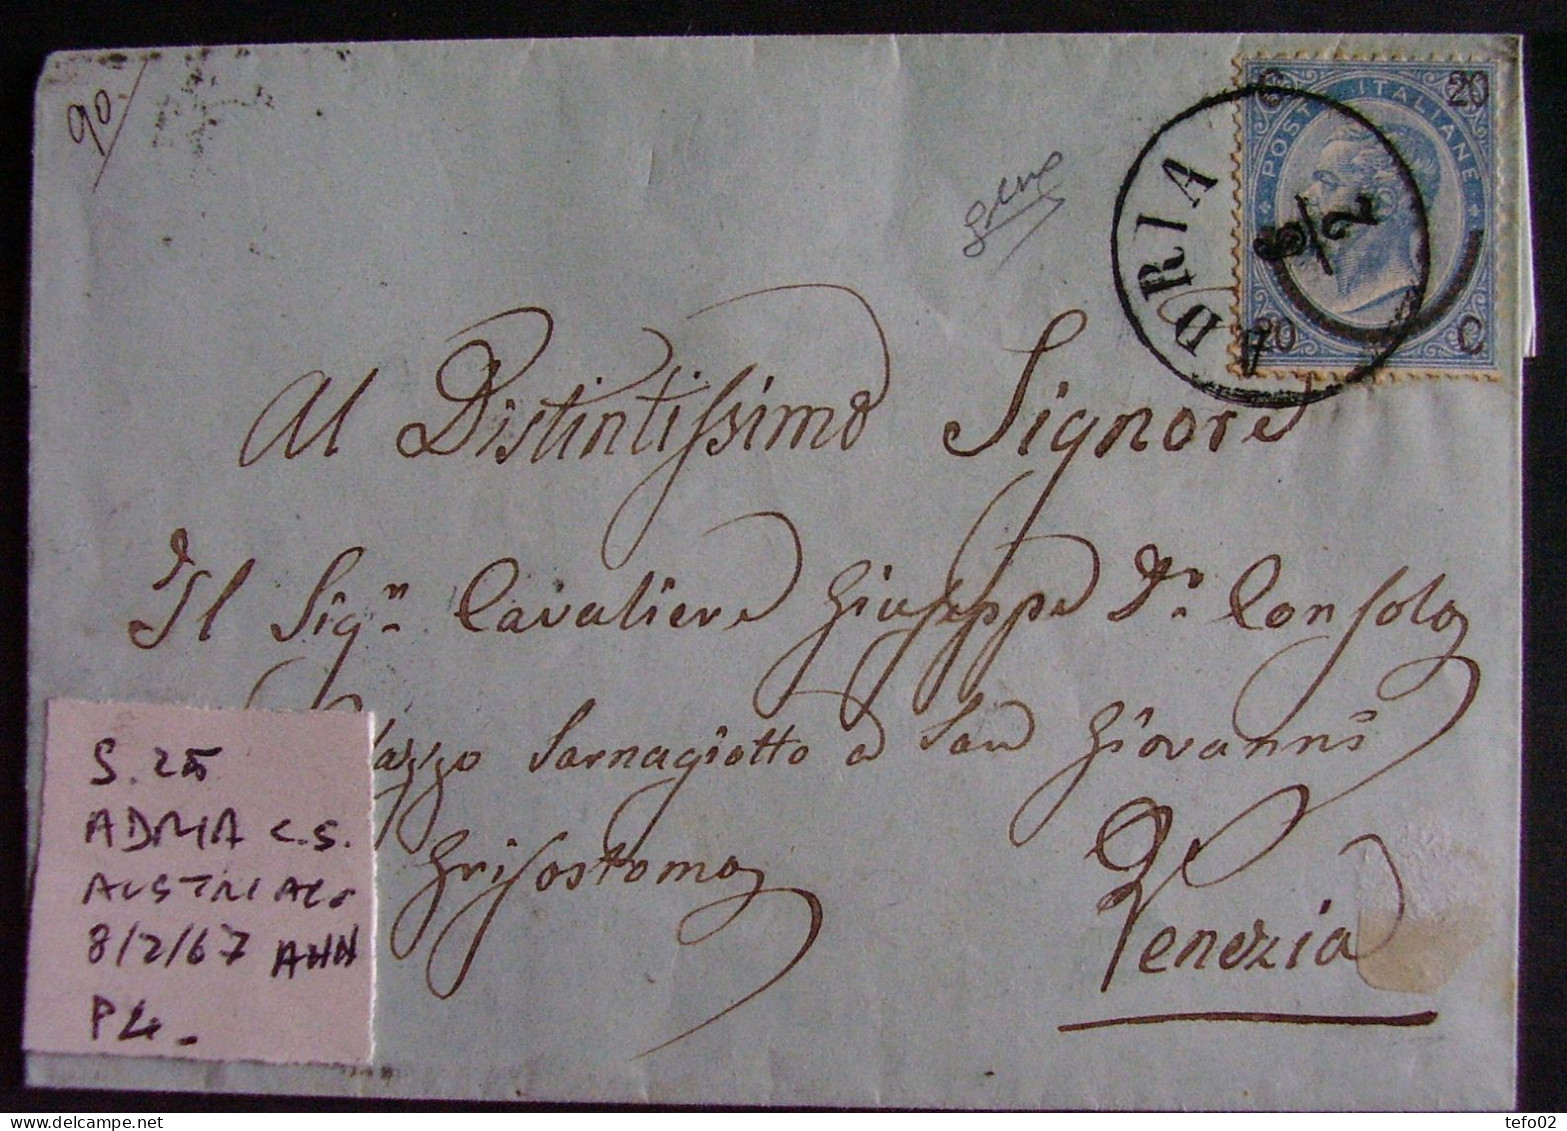 90
C 20
POSTE ITALIANE
20 C
ADRIA
8/2
Al Distintissimo Signore
Il Sigr. Cavaliere Giuseppe Dr. Consolo
Palazzo Sarnagiotto a San Giovanni
Grisostomo
Venezia
S. 25
ADRIA C.S.
8/2/67
P4-
tefo02